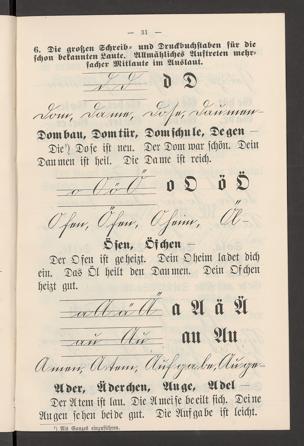 — 31 —
6. Die großen Schreib- und Druckbuchstaben für die
schon bekannten Laute. Allmähliches Auftreten mehr-
facher Mitlaute im Auslaut.
d D d D
Dom, Dame, Dose, Daumen —
Dombau, Domtür, Domschule, Degen —
Die¹) Dose ist neu. Der Dom war schön. Dein
Daumen ist heil. Die Dame ist reich.
o O ö Ö o O ö Ö
Ofen, Öfen, Oheim, Öl —
Ösen, Öschen —
Der Ofen ist geheizt. Dein Oheim ladet dich
ein. Das Öl heilt den Daumen. Dein Öfchen
heizt gut.
a A ä Ä a A ä Ä
au Au au Au
Amen, Atem, Aufgabe, Auge —
Ader, Äderchen, Auge, Adel —
Der Atem ist lau. Die Ameise beeilt sich. Deine
Augen sehen beide gut. Die Aufgabe ist leicht.
¹) Als Ganzes einzuführen.